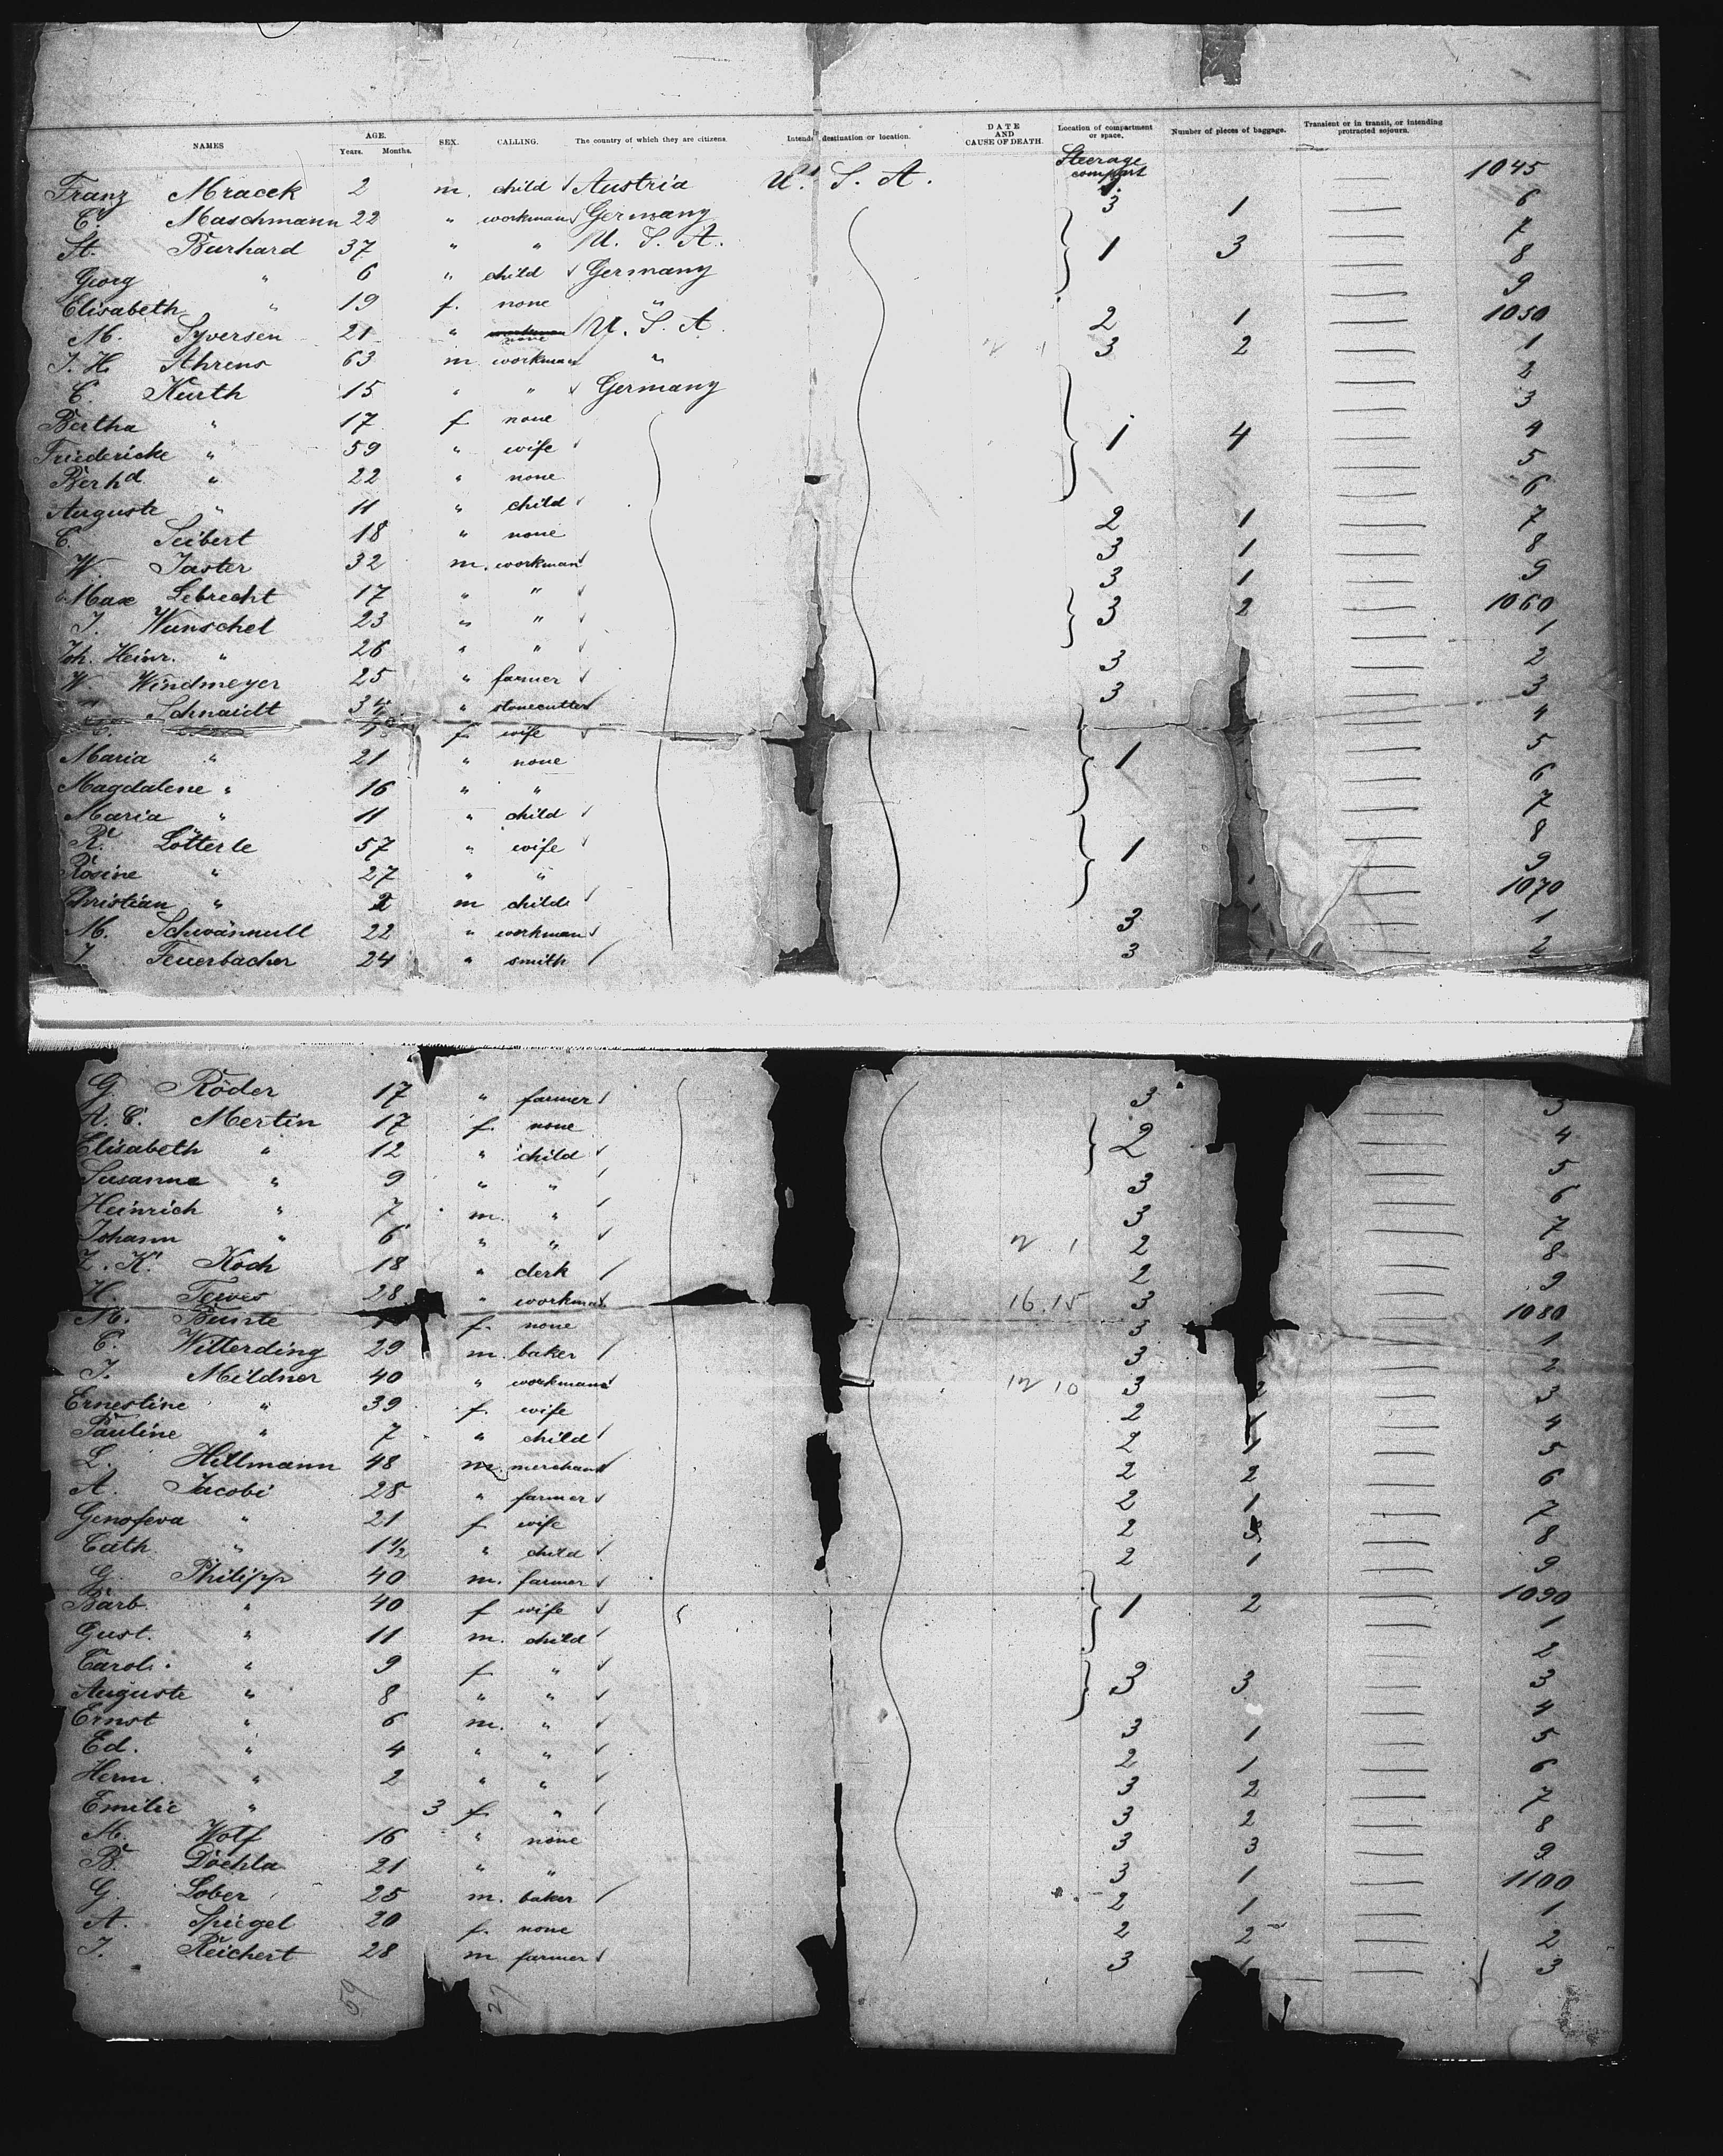 NAMES AGE. Years. Months. SEX. CALLING. The country of which they are citizens. Intended destination or location. DATE AND CAUSE OF DEATH. Location of compartment or space. Number of pieces of baggage. Transient or in transit, or intending protracted sojourn.
Steerage
Franz Mracek 2 m. child Austria U. S. A. 1045
C. Maschmann 22 " workman Germany 3 1 6
St. Burhard 37 " " U. S. A. 1 3 7
Georg " 6 " child Germany 8
Elisabeth " 19 f. none " 9
M. Syversen 21 " none U. S. A. 2 1 1050
J. H. Ahrens 63 m workman " 3 2 1
C. Kurth 15 " " Germany 2
Bertha " 17 f none 3
Friedericke " 59 " wife 1 4 4
Berhd " 22 " none 5
Auguste " 11 " child 6
C. Seibert 18 " none 2 1 7
W. Jaster 32 m. workman 3 1 8
Max Lebrecht 17 " " 3 1 9
J. Wunschel 23 " " 3 2 1060
Joh. Heinr. " 26 " " 1
W. Windmeyer 25 " farmer 3 2
Schnaidt " stonecutter 3 3
f. wife 4
Maria " 21 " none 1 5
Magdalene " 16 " " 6
Maria " 11 " child 7
R. Lötterle 57 " wife 1 8
Rosine " 27 " " 9
Christian " 2 m child 1070
M. Schwännull 22 " workman 3 1
J. Feuerbacher 24 " smith 3 2
G. Röder 17 " farmer 3 3
A. C. Mertin 17 f. none 2 4
Elisabeth " 12 " child 5
Susanna " 9 " " 3 6
Heinrich " 7 m. " 3 7
Johann " 6 " " 2 8
Z. K. Koch 18 " clerk 2 9
H. Tewes 28 " workman 16.15 3 1080
M. Bunte f. none 3 1
C. Witterding 29 m. baker 3 2
J. Mildner 40 " workman 3 2 3
Ernestine " 39 f. wife 2 1 4
Pauline " 7 " child 2 1 5
L. Hillmann 48 m. merchant 2 2 6
A. Jacobi 28 " farmer 2 1 7
Genofeva " 21 f wife 2 3 8
Cath. " 1 1/2 " child 2 1 9
G. Philipp 40 m. farmer 1090
Barb. " 40 f wife 1 2 1
Gust. " 11 m. child 2
Carol. " 9 f " 3
Auguste " 8 " " 3 3 4
Ernst " 6 m. " 3 1 5
Ed. " 4 " " 2 1 6
Herm. " 2 " " 3 2 7
Emilie " 3 f. " 3 2 8
M. Wolf 16 " none 3 3 9
B. Döehla 21 " " 3 1 1100
G. Lober 25 m. baker 2 1 1
A. Spiegel 20 f. none 2 2 2
J. Reichert 28 m farmer 3 1 3
59 27